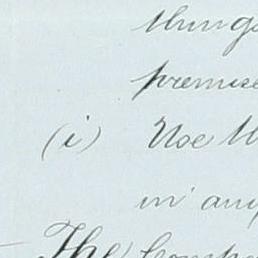 things
premise
(i) Use th
in any
The Compa